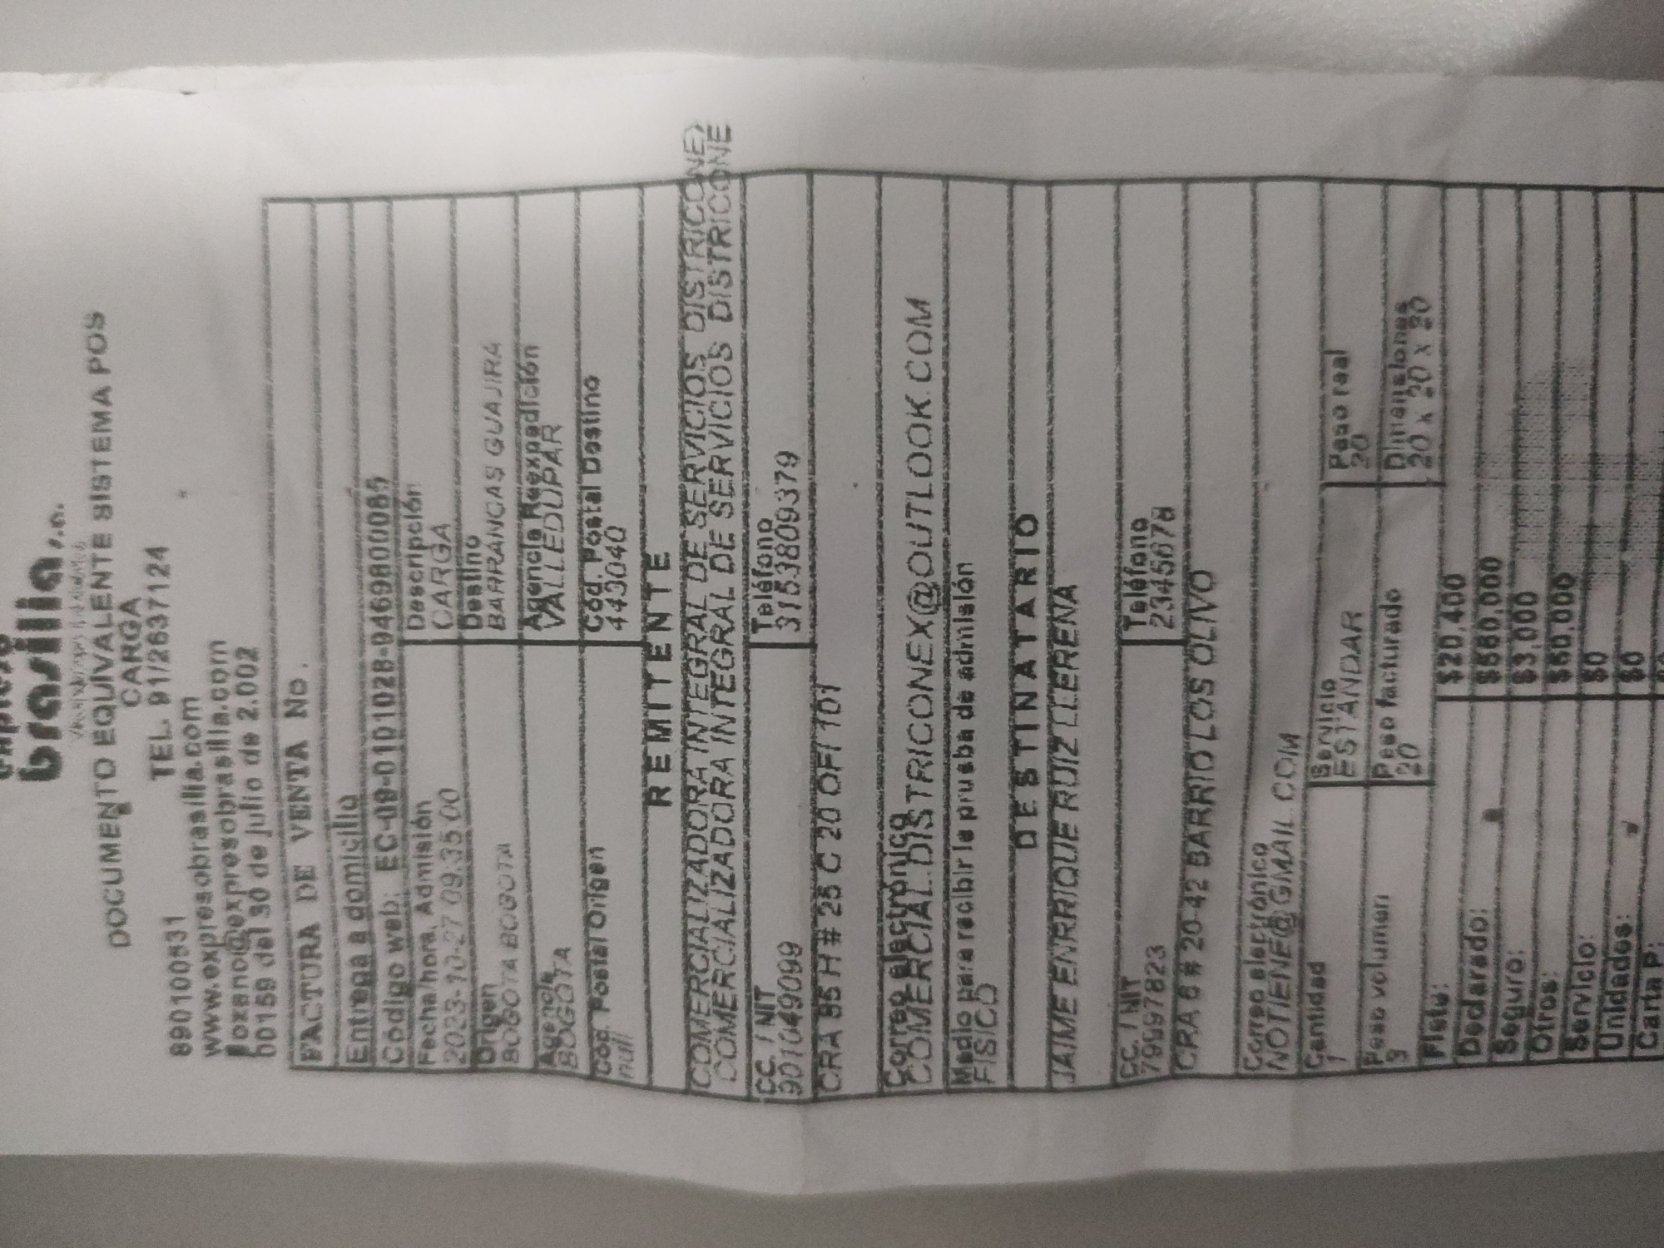 brasilia s.a.
DOCUMENTO EQUIVALENTE SISTEMA POS
CARGA
TEL. 91/2637124
890100531
www.expresobrasilia.com
00159 del 30 de julio de 2.002
FACTURA DE VENTA No.
Entrega a domicilio
Código web: EC-09-0101028-9469800085
Fecha/hora. Admisión Descripción
2023-10-27 09.35.00 CARGA
Origen Destino
BOGOTA BOGOTA BARRANCAS GUAJIRA
Agencia Agencia Reexpedición
BOGOTA VALLEDUPAR
Cod. Postal Origen Cód. Postal Destino
null 443040
REMITENTE
COMERCIALIZADORA INTEGRAL DE SERVICIOS DISTRICONEX
COMERCIALIZADORA INTEGRAL DE SERVICIOS DISTRICONE
CC. / NIT Teléfono
901049099 3153809379
CRA 95 H # 25 C 20 OFI 101
Correo electrónico
COMERCIAL.DISTRICONEX@OUTLOOK.COM
Medio para recibir la prueba de admisión
FISICO
DESTINATARIO
JAIME ENRRIQUE RUIZ LLERENA
CC. / NIT Teléfono
79997823 2345678
CRA 6 # 20-42 BARRIO LOS OLIVO
Correo electrónico
NOTIENE@GMAIL.COM
Cantidad Servicio Peso real
1 ESTANDAR 20
Peso volumen Peso facturado Dimensiones
3 20 20 x 20 x 20
Flete: $20,400
Declarado:
Seguro: $3,000
Otros:
Servicio: $0
Unidades: $0
Carta P: